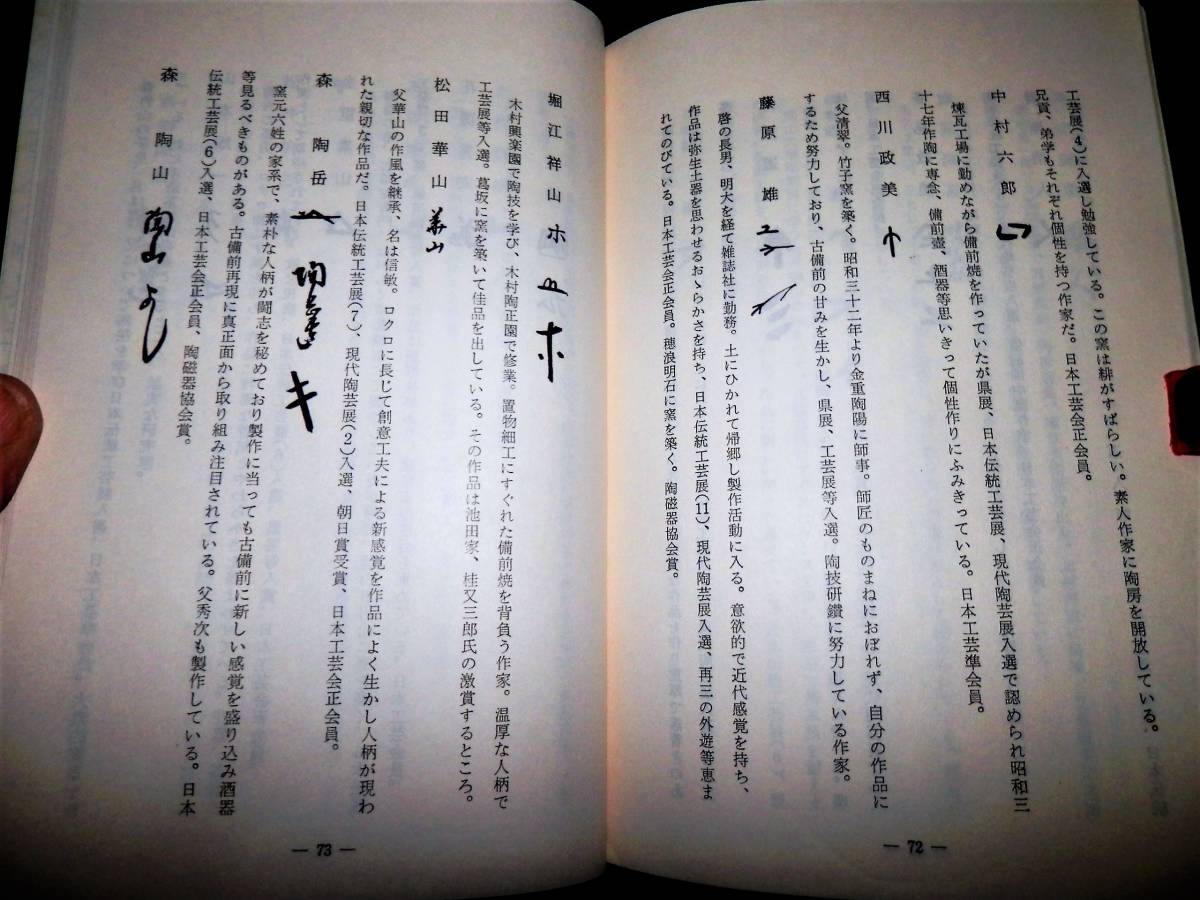 工芸展(4)に入選し勉強している。この窯は緋がすばらしい。素人作家に陶房を開放している。
兄貢、弟学もそれぞれ個性を持つ作家だ。日本工芸会正会員。
中村六郎
煉瓦工場に勤めながら備前焼を作っていたが県展、日本伝統工芸展、現代陶芸展入選で認められ昭和三
十七年作陶に専念、備前壺、酒器等思いきって個性作りにふみきっている。日本工芸準会員。
西川政美
父清翠。竹子窯を築く。昭和三十二年より金重陶陽に師事。師匠のものまねにおぼれず、自分の作品に
するため努力しており、古備前の甘みを生かし、県展、工芸展等入選。陶技研鑽に努力している作家。
藤原 雄
啓の長男、明大を経て雑誌社に勤務。土にひかれて帰郷し製作活動に入る。意欲的で近代感覚を持ち、
作品は弥生土器を思わせるおゝらかさを持ち、日本伝統工芸展(11)、現代陶芸展入選、再三の外遊等恵ま
れてのびている。日本工芸会正会員。穂浪明石に窯を築く。陶磁器協会賞。
— 72 —
堀江祥山 ホ
木村興楽園で陶技を学び、木村陶正園で修業。置物細工にすぐれた備前焼を背負う作家。温厚な人柄で
工芸展等入選。葛坂に窯を築いて佳品を出している。その作品は池田家、桂又三郎氏の激賞するところ。
松田華山 華山
父華山の作風を継承、名は信敏。ロクロに長じて創意工夫による新感覚を作品によく生かし人柄が現わ
れた親切な作品だ。日本伝統工芸展(7)、現代陶芸展(2)入選、朝日賞受賞、日本工芸会正会員。
森 陶岳 キ
窯元六姓の家系で、素朴な人柄が闘志を秘めており製作に当っても古備前に新しい感覚を盛り込み酒器
等見るべきものがある。古備前再現に真正面から取り組み注目されている。父秀次も製作している。日本
伝統工芸展(6)入選、日本工芸会正会員、陶磁器協会賞。
森 陶山 陶山 よし
— 73 —